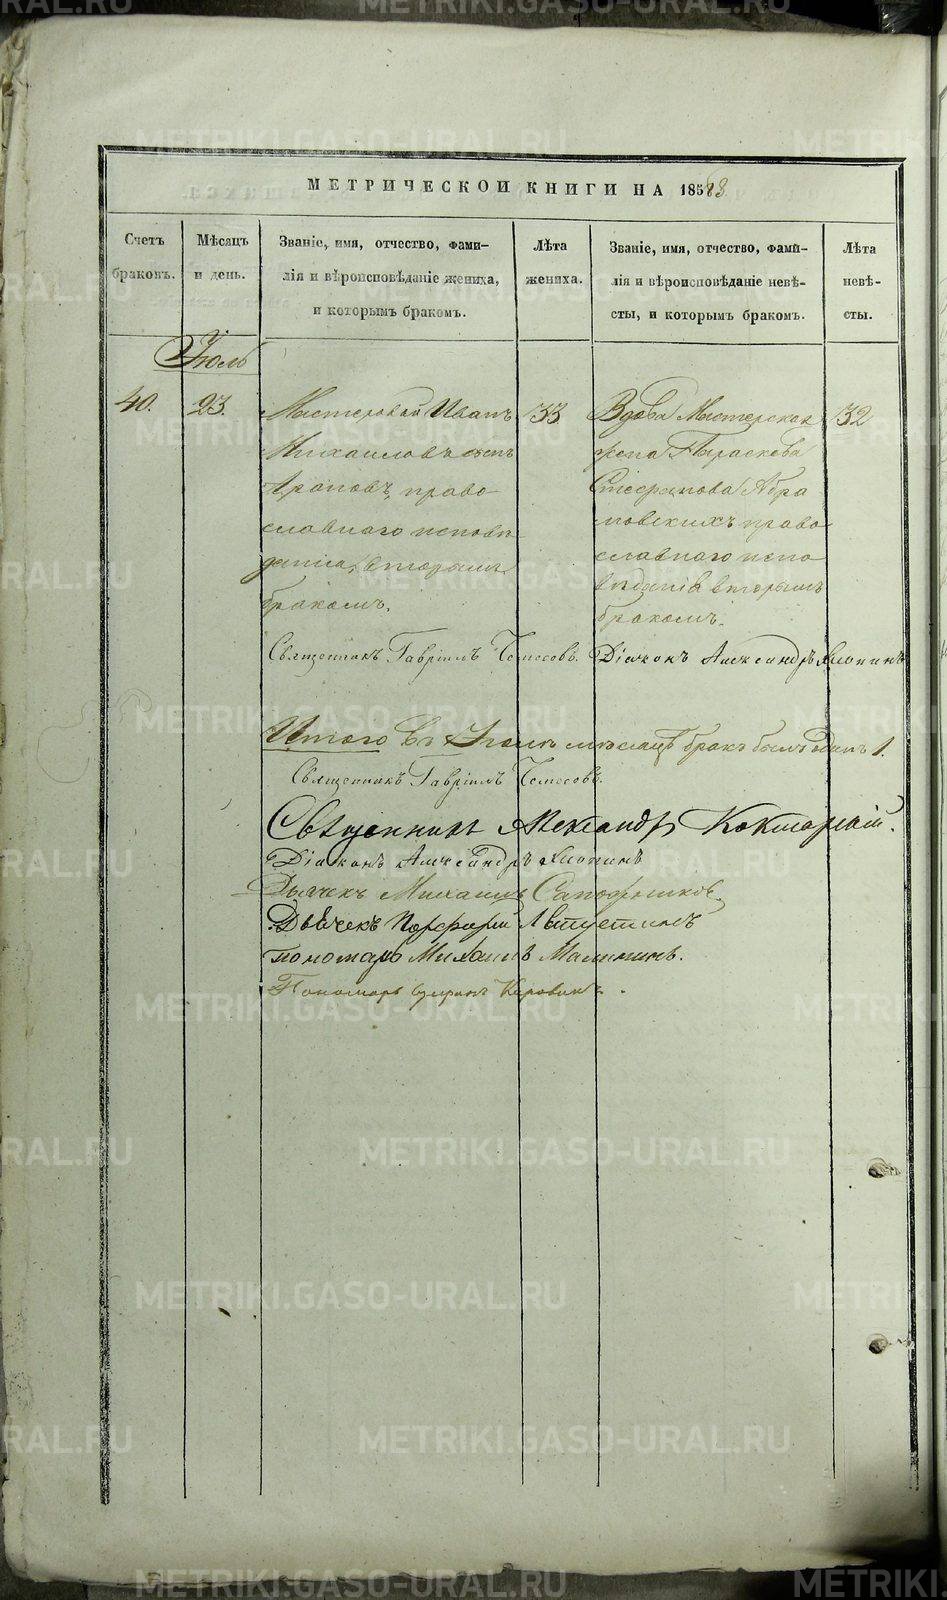 МЕТРИЧЕСКОЙ КНИГИ НА 1858
Счетъ браковъ.
Мѣсяцъ и день.
Званіе, имя, отчество, фами-
лія и вѣроисповѣданіе жениха,
и которымъ бракомъ.
Лѣта жениха.
Званіе, имя, отчество, фами-
лія и вѣроисповѣданіе невѣ-
сты, и которымъ бракомъ.
Лѣта невѣ-
сты.
Іюль
40.
23.
Мастеровой Иванъ
Михаиловъ
право
славнаго исповѣ
данія, вторымъ
бракомъ.
33
Вдова Мастерская
жена Параскева
Стефанова Абра
мовскихъ право
славнаго испо
вѣданія вторымъ
бракомъ.
32
Священникъ Гавріилъ Діаконъ Александръ Хлопинъ
Итого въ Іюлѣ мѣсяцѣ бракъ былъ одинъ 1.
Священникъ Гавріилъ
Священникъ Александръ Кокшарскій.
Діаконъ Александръ Хлопинъ
Дьячекъ Михаилъ Сапожниковъ
Дьячекъ Порфирій
пономарь Михаилъ Малининъ.
Пономарь
METRIKI.GASO-URAL.RU